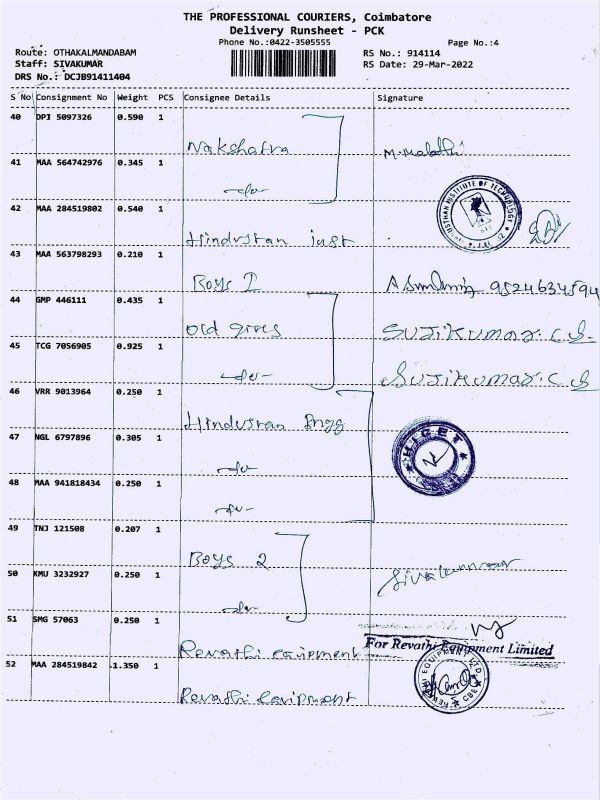 THE PROFESSIONAL COURIERS, Coimbatore
Delivery Runsheet - PCK
Phone No.:0422-3505555
Page No.:4
Route: OTHAKALMANDABAM
RS No.: 914114
Staff: SIVAKUMAR
RS Date: 29-Mar-2022
DRS No.: DCJB91411404
S No Consignment No Weight PCS Consignee Details Signature
40 DPI 5097326 0.590 1
Nakshatra
41 MAA 564742976 0.345 1
42 MAA 284519802 0.540 1
INSTITUTE OF TECHNOLOGY
Hindustan inst
43 MAA 563798293 0.210 1
Boys I 9524634594
44 GMP 446111 0.435 1
old SUJIKUMAR.C.S.
45 TCG 7056905 0.925 1
SUJIKUMAR.C.S
46 VRR 9013964 0.250 1
Hindustan Engg
HICET
47 NGL 6797896 0.305 1
48 MAA 941818434 0.250 1
49 TNJ 121508 0.207 1
Boys 2
50 KMU 3232927 0.250 1
Sivakumar
51 SMG 57063 0.250 1
For Revathi Equipment Limited
Revathi equipment
52 MAA 284519842 1.350 1
REVATHI EQUIPMENT LTD. CBE
Revathi equipment